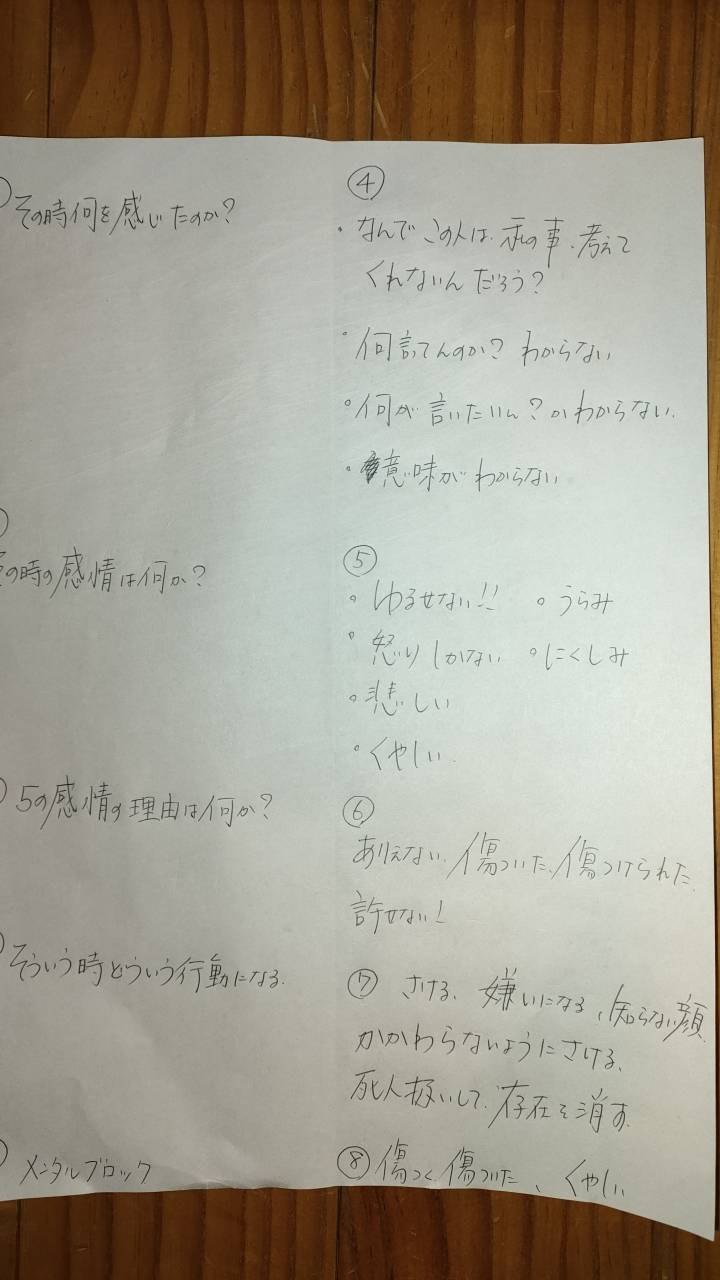 その時何を感じたのか?
の時の感情は何か?
5の感情の理由は何か?
そういう時どういう行動になる.
メンタルブロック
④
・なんでこの人は、私の事、考えて
くれないんだろう?
・何言ってんのか? わからない
・何が言いたいん?かわからない.
・意味がわからない
⑤
・ゆるせない!! ・うらみ
・怒りしかない ・にくしみ
・悲しい
・くやしい.
⑥
ありえない、傷ついた、傷つけられた
許せない!
⑦ さける、嫌いになる、知らない顔
かかわらないようにさける、
死人扱いして、存在を消す.
⑧ 傷つく、傷ついた、くやしい